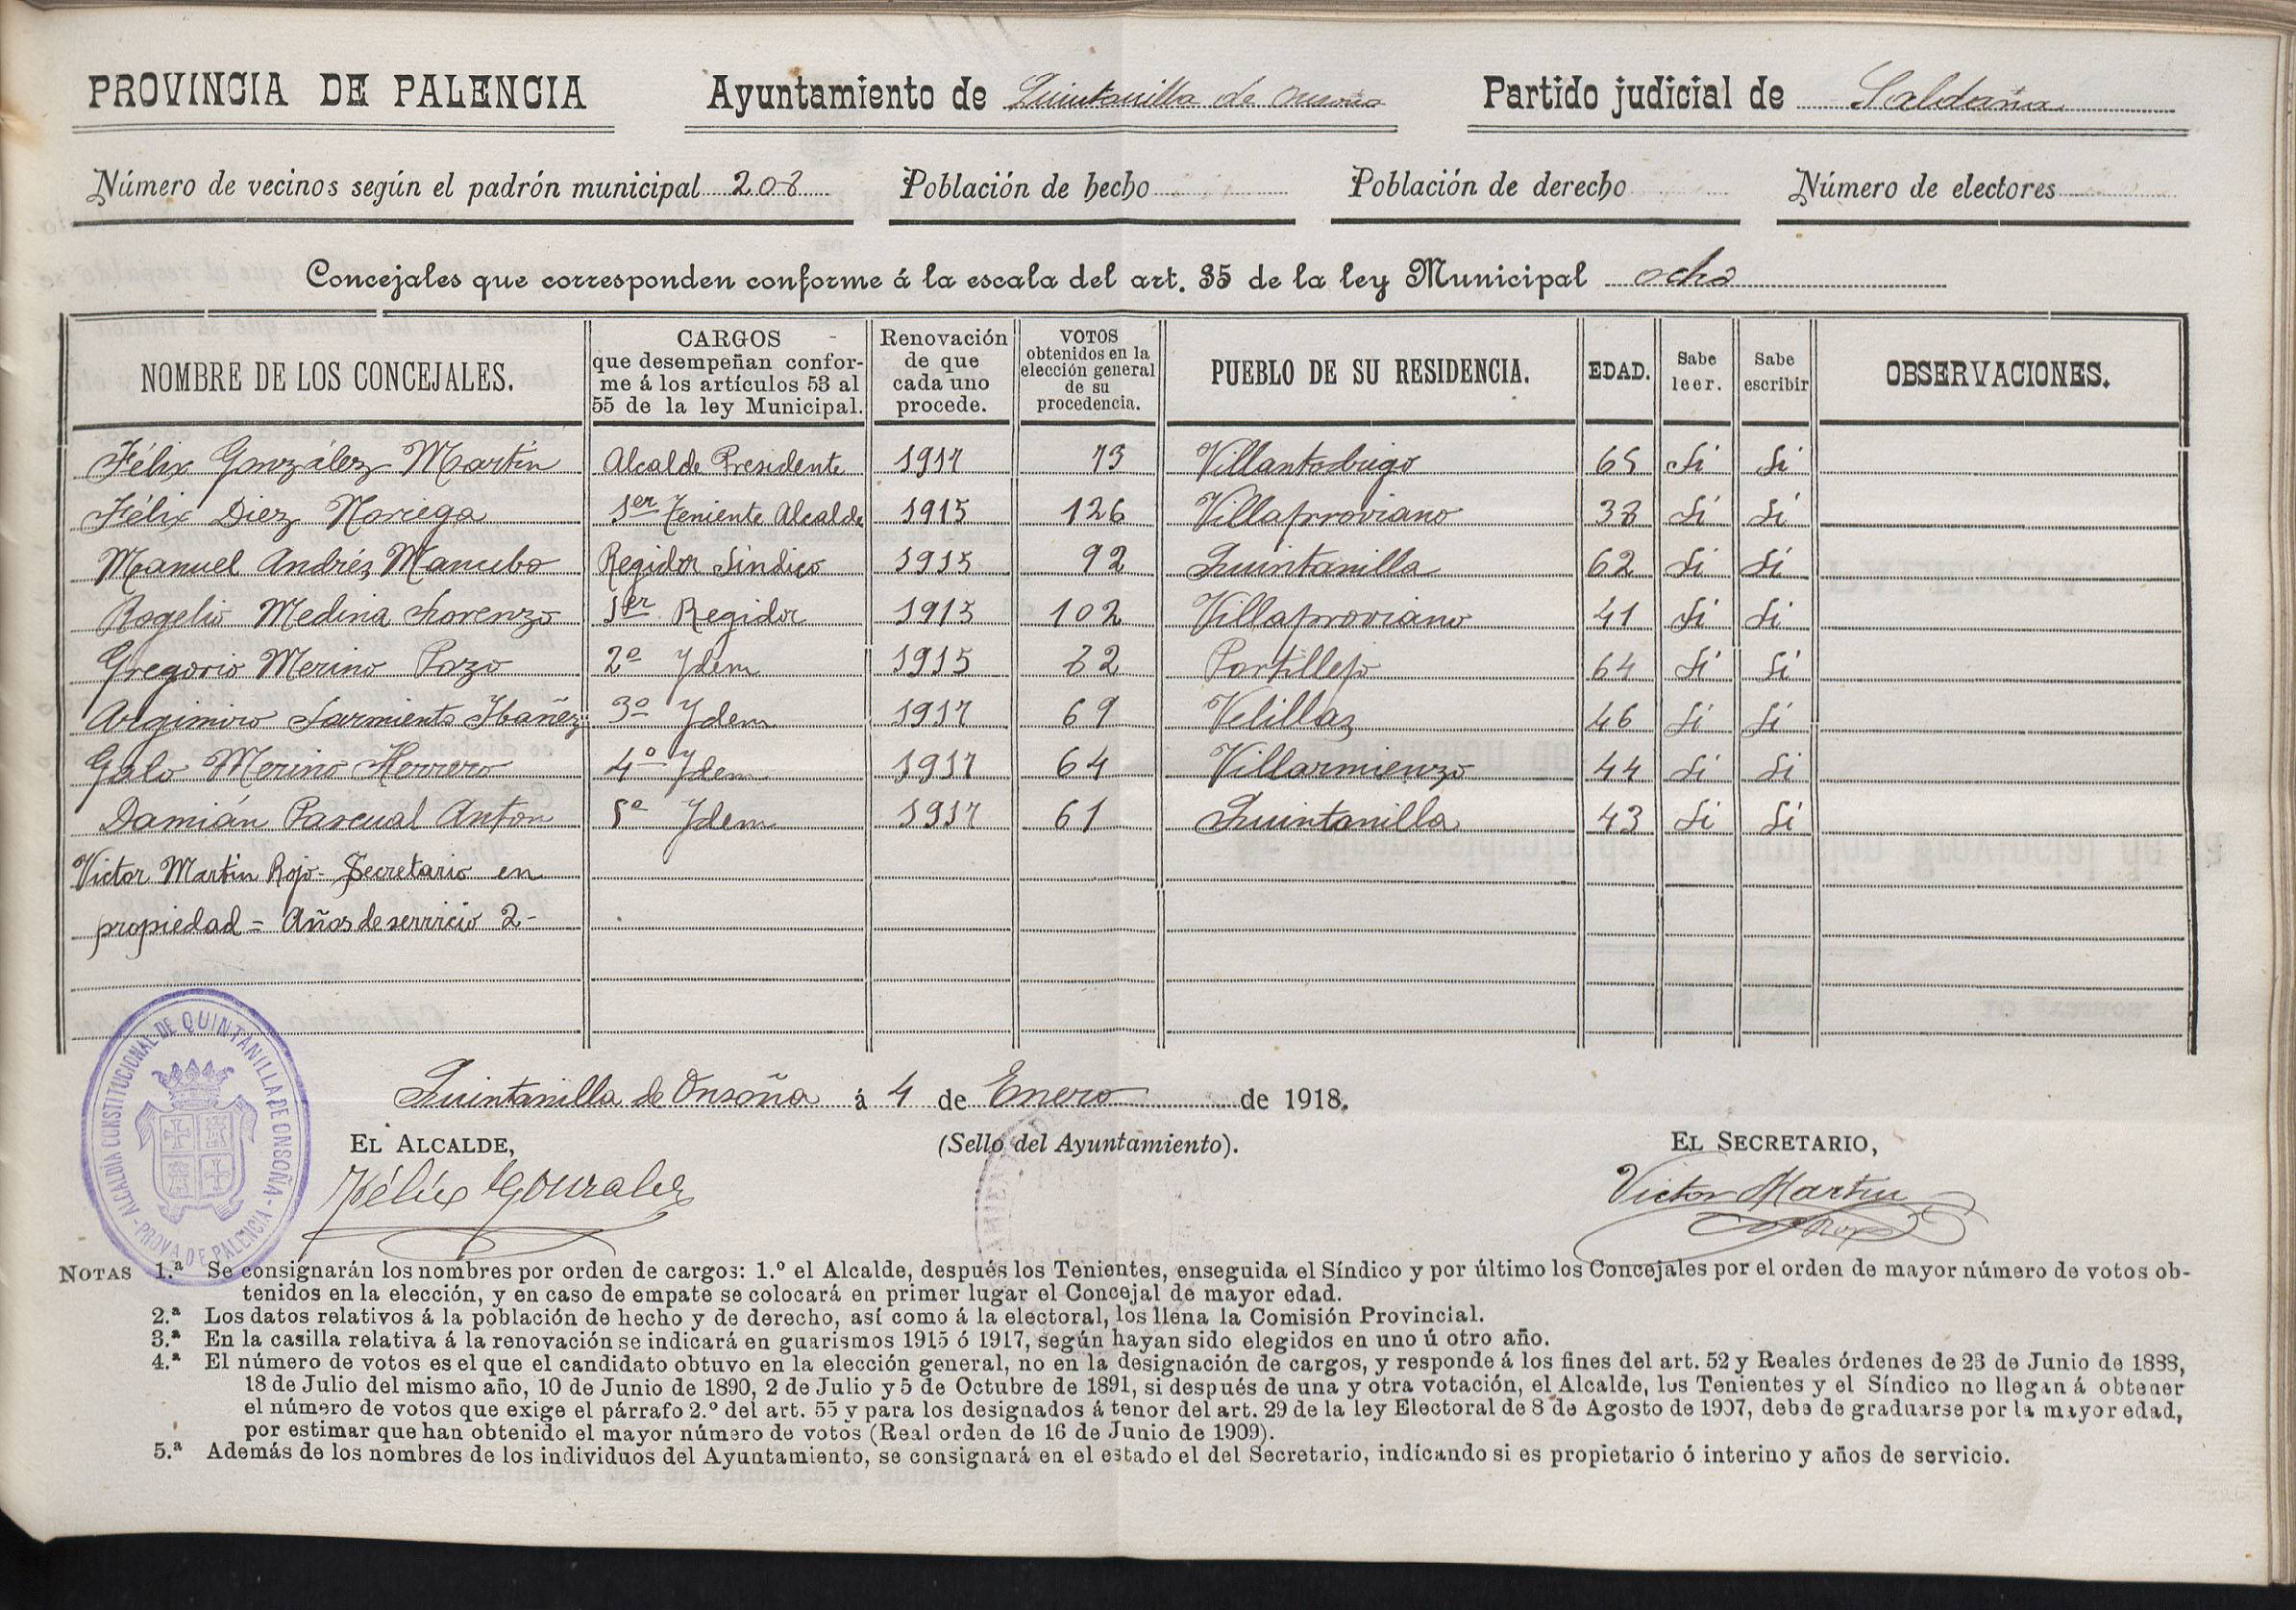 PROVINCIA DE PALENCIA Ayuntamiento de Quintanilla de Onsoña Partido judicial de Saldaña
Número de vecinos según el padrón municipal 208 Población de hecho Población de derecho Número de electores
Concejales que corresponden conforme á la escala del art. 35 de la ley Municipal ocho
NOMBRE DE LOS CONCEJALES. CARGOS que desempeñan confor- me á los artículos 53 al 55 de la ley Municipal. Renovación de que cada uno procede. VOTOS obtenidos en la elección general de su procedencia. PUEBLO DE SU RESIDENCIA. EDAD. Sabe leer. Sabe escribir OBSERVACIONES.
Félix González Martín Alcalde Presidente 1917 73 Villantodrigo 65 Si Si
Félix Diez Noriega 1er Teniente Alcalde 1915 126 Villaproviano 38 Si Si
Manuel Andrés Mancebo Regidor Síndico 1915 92 Quintanilla 62 Si Si
Rogelio Medina Lorenzo 1er Regidor 1915 102 Villaproviano 41 Si Si
Gregorio Merino Pozo 2º Idem 1915 82 Portillejo 64 Si Si
Argimiro Sarmiento Ibañez 3º Idem 1917 69 Velillas 46 Si Si
Galo Merino Herrero 4º Idem 1917 64 Villarmienzo 44 Si Si
Damián Pascual Anton 5º Idem 1917 61 Quintanilla 43 Si Si
Victor Martín Rojo - Secretario en
propiedad = Años de servicio 2 -
Quintanilla de Onsoña á 4 de Enero de 1918.
EL ALCALDE, (Sello del Ayuntamiento). EL SECRETARIO,
Félix Gonzalez Victor Martin
Rojo
ALCALDÍA CONSTITUCIONAL DE QUINTANILLA DE ONSOÑA - PROVA DE PALENCIA -
NOTAS 1.ª Se consignarán los nombres por orden de cargos: 1.º el Alcalde, después los Tenientes, enseguida el Síndico y por último los Concejales por el orden de mayor número de votos ob-
tenidos en la elección, y en caso de empate se colocará en primer lugar el Concejal de mayor edad.
2.ª Los datos relativos á la población de hecho y de derecho, así como á la electoral, los llena la Comisión Provincial.
3.ª En la casilla relativa á la renovación se indicará en guarismos 1915 ó 1917, según hayan sido elegidos en uno ú otro año.
4.ª El número de votos es el que el candidato obtuvo en la elección general, no en la designación de cargos, y responde á los fines del art. 52 y Reales órdenes de 23 de Junio de 1888,
18 de Julio del mismo año, 10 de Junio de 1890, 2 de Julio y 5 de Octubre de 1891, si después de una y otra votación, el Alcalde, los Tenientes y el Síndico no llegan á obtener
el número de votos que exige el párrafo 2.º del art. 55 y para los designados á tenor del art. 29 de la ley Electoral de 8 de Agosto de 1907, debe de graduarse por la mayor edad,
por estimar que han obtenido el mayor número de votos (Real orden de 16 de Junio de 1909).
5.ª Además de los nombres de los individuos del Ayuntamiento, se consignará en el estado el del Secretario, indicando si es propietario ó interino y años de servicio.